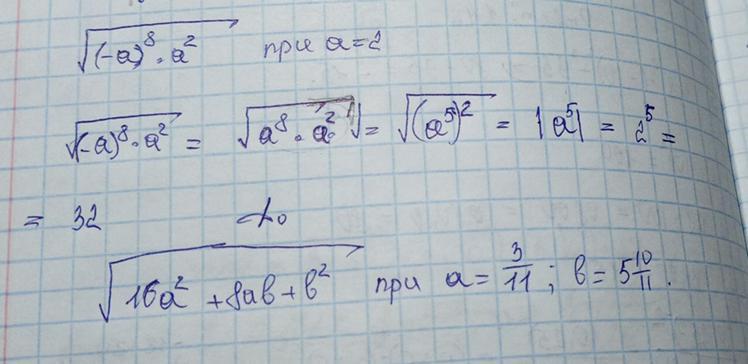 √((-a)⁸ · a²) при a=2
√((-a)⁸ · a²) = √(a⁸ · a²) = √((a⁵)²) = |a⁵| = 2⁵ =
= 32
√(16a² + 8ab + b²) при a = 3/11; b = 5 10/11.